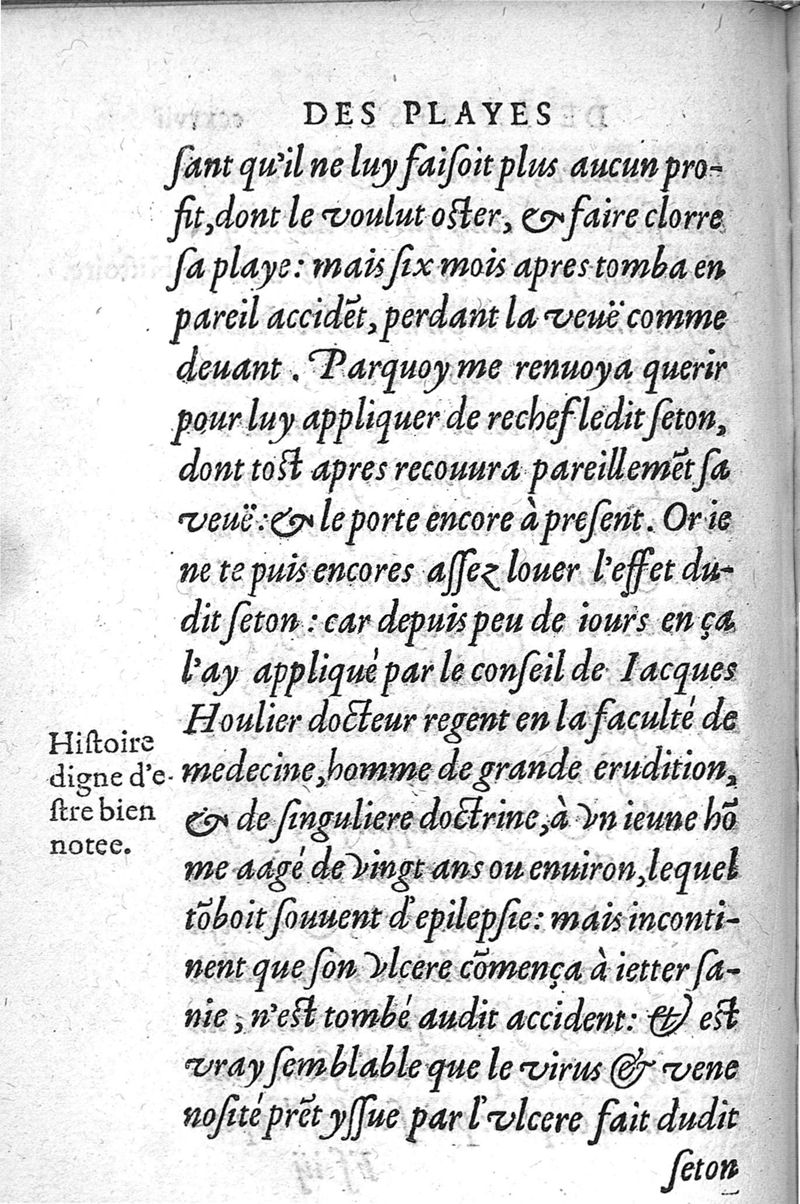 DES PLAYES
ſant qu'il ne luy faiſoit plus aucun pro-
fit, dont le voulut oſter, & faire clorre
ſa playe: mais ſix mois apres tomba en
pareil accidẽt, perdant la veuë comme
deuant. Parquoy me renuoya querir
pour luy appliquer de rechef ledit ſeton,
dont toſt apres recouura pareillemẽt ſa
veuë: & le porte encore à preſent. Or ie
ne te puis encores aſſez louer l'effet du-
dit ſeton: car depuis peu de iours en ça
l'ay appliqué par le conſeil de Iacques
Houlier docteur regent en la faculté de
Hiſtoire
digne d'e-
ſtre bien
notee.
medecine, homme de grande erudition,
& de ſinguliere doctrine, à vn ieune hõ
me aagé de vingt ans ou enuiron, lequel
tõboit ſouuent d'epilepſie: mais inconti-
nent que ſon vlcere cõmença à ietter ſa-
nie, n'eſt tombé audit accident: & eſt
vray ſemblable que le virus & vene
noſité prẽt yſſue par l'vlcere fait dudit
ſeton